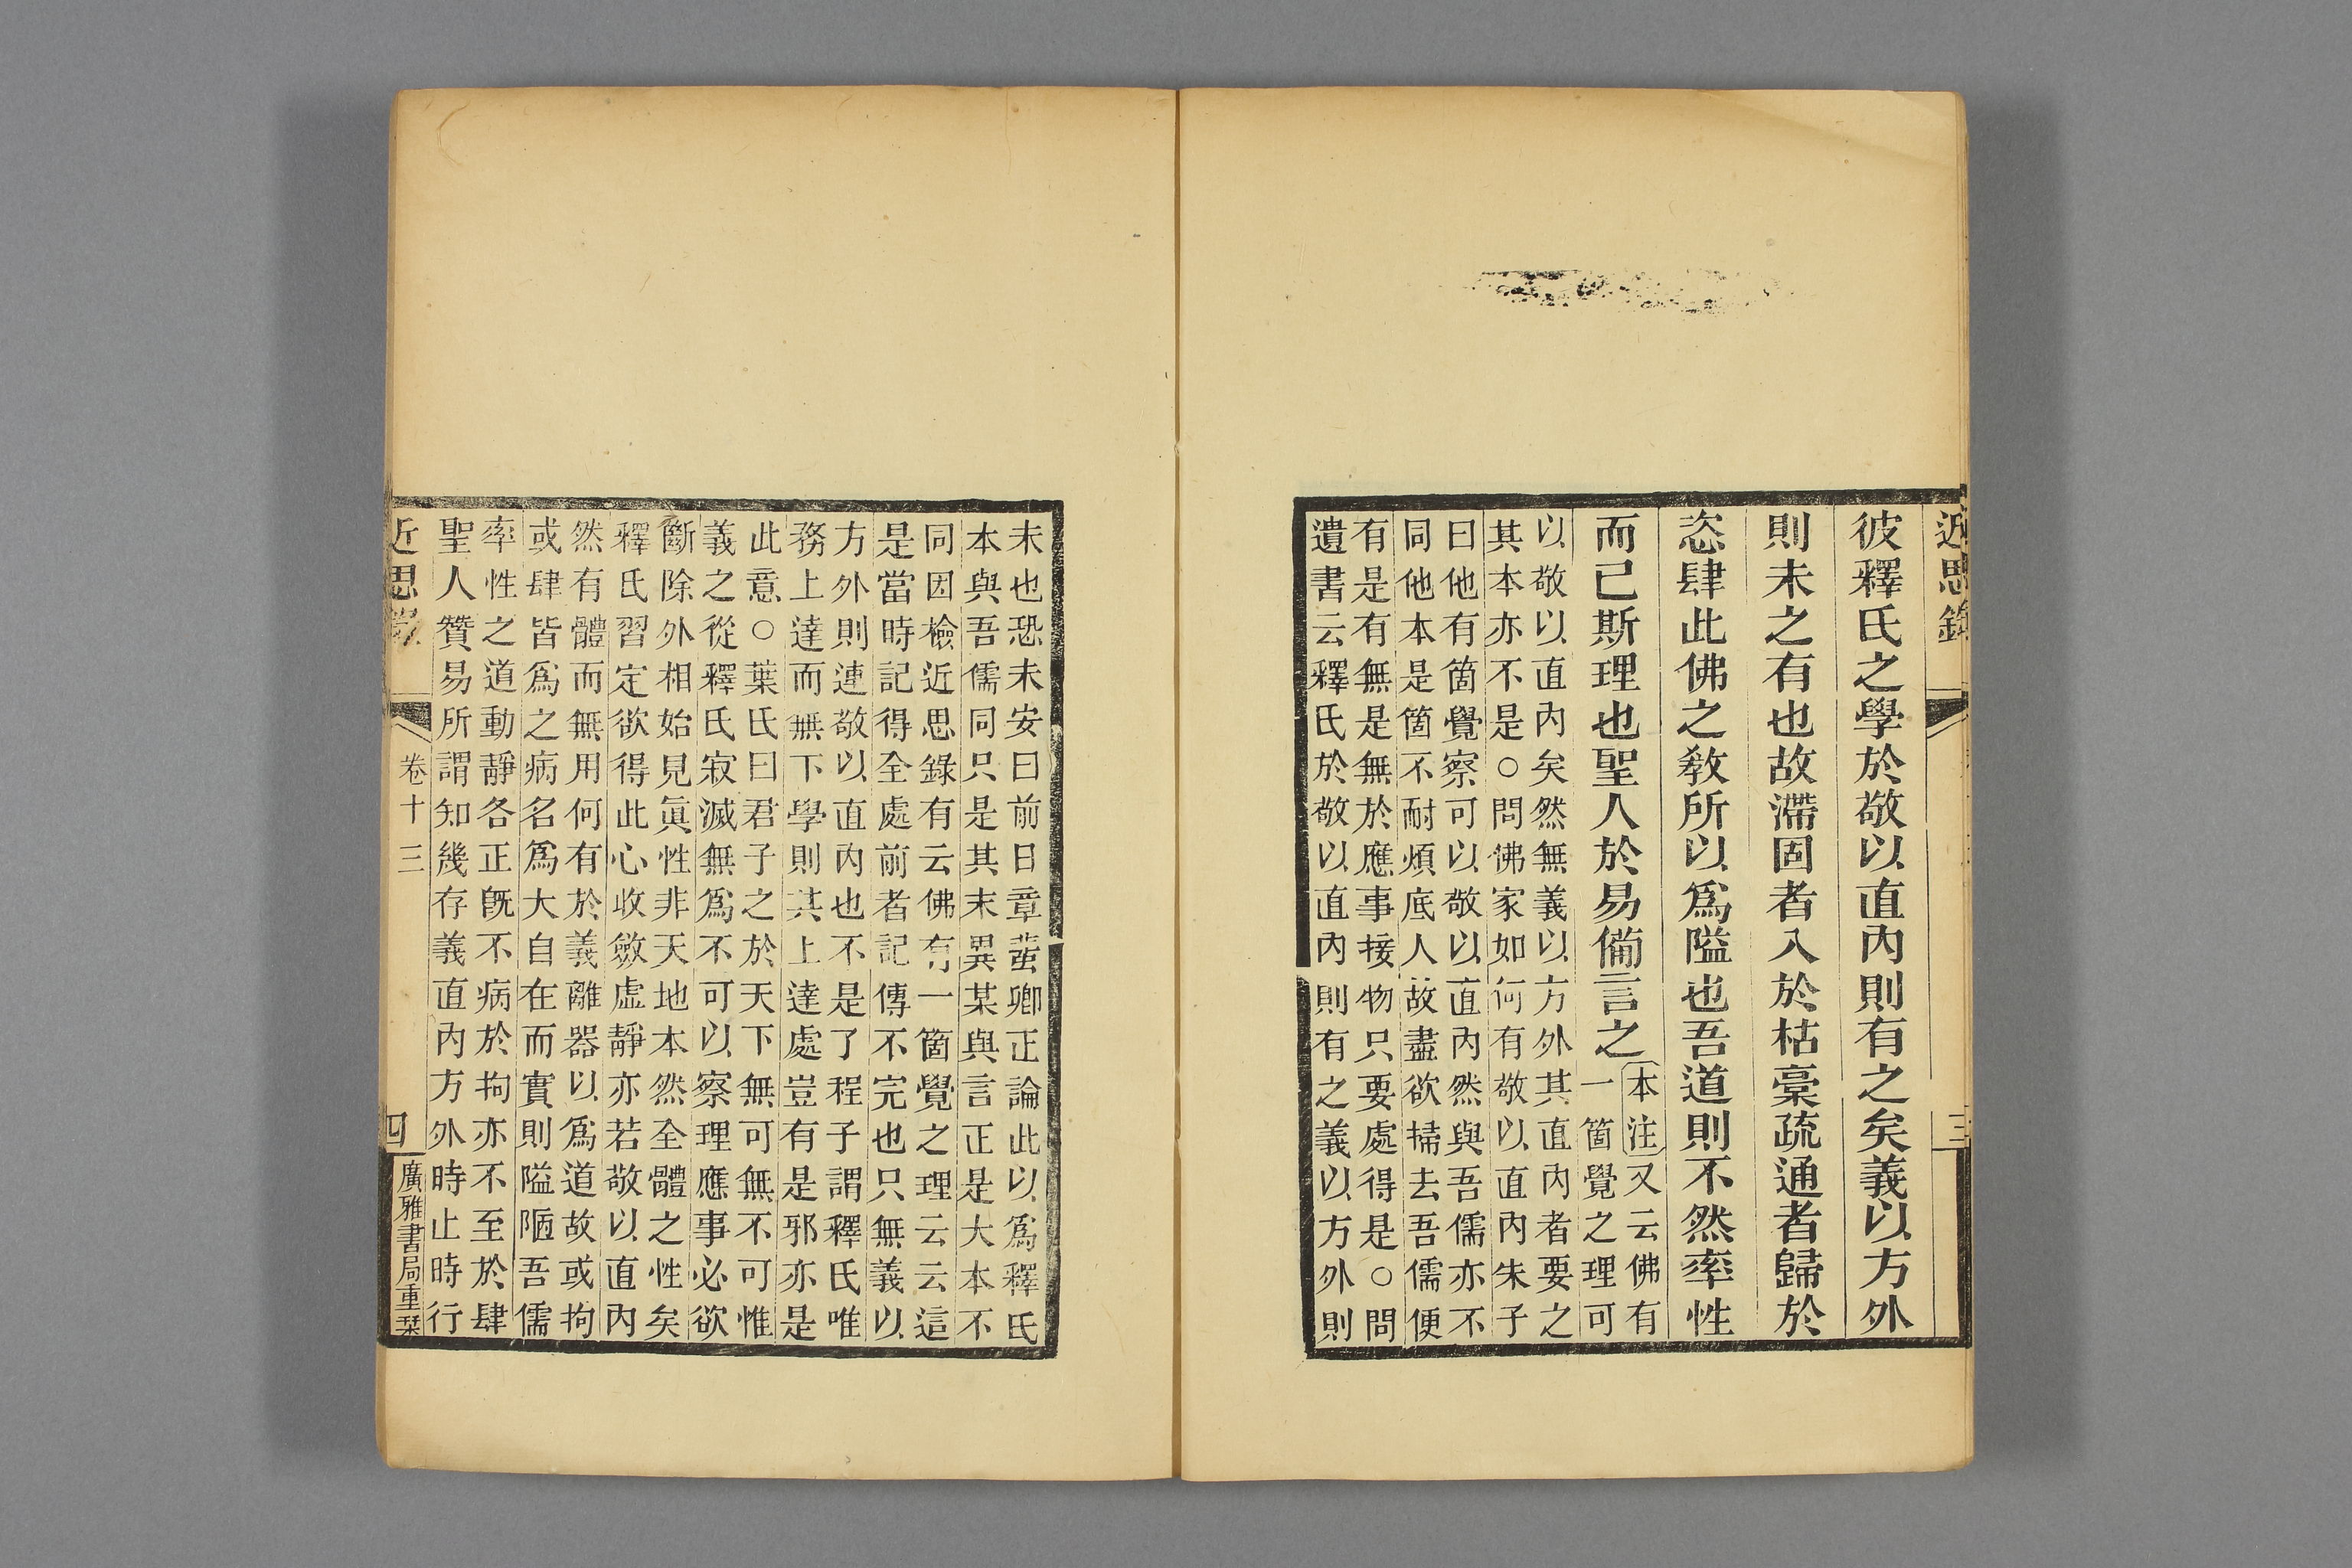 近思錄
三
彼釋氏之學於敬以直內則有之矣義以方外
則未之有也故滯固者入於枯槀疏通者歸於
恣肆此佛之敎所以爲隘也吾道則不然率性
而已斯理也聖人於易備言之
本注又云佛有
一箇覺之理可
以敬以直內矣然無義以方外其直內者要之
其本亦不是○問佛家如何有敬以直內朱子
曰他有箇覺察可以敬以直內然與吾儒亦不
同他本是箇不耐煩底人故盡欲掃去吾儒便
有是有無是無於應事接物只要處得是○問
遺書云釋氏於敬以直內則有之義以方外則
未也恐未安曰前日章蜚卿正論此以爲釋氏
本與吾儒同只是其末異某與言正是大本不
同因檢近思錄有云佛有一箇覺之理云云這
是當時記得全處前者記傳不完也只無義以
方外則連敬以直內也不是了程子謂釋氏唯
務上達而無下學則其上達處豈有是邪亦是
此意○葉氏曰君子之於天下無可無不可惟
義之從釋氏寂滅無爲不可以察理應事必欲
斷除外相始見眞性非天地本然全體之性矣
釋氏習定欲得此心收斂虛靜亦若敬以直內
然有體而無用何有於義離器以爲道故或拘
或肆皆爲之病名爲大自在而實則隘陋吾儒
率性之道動靜各正旣不病於拘亦不至於肆
聖人贊易所謂知幾存義直內方外時止時行
近思錄
卷十三
四
廣雅書局重棊